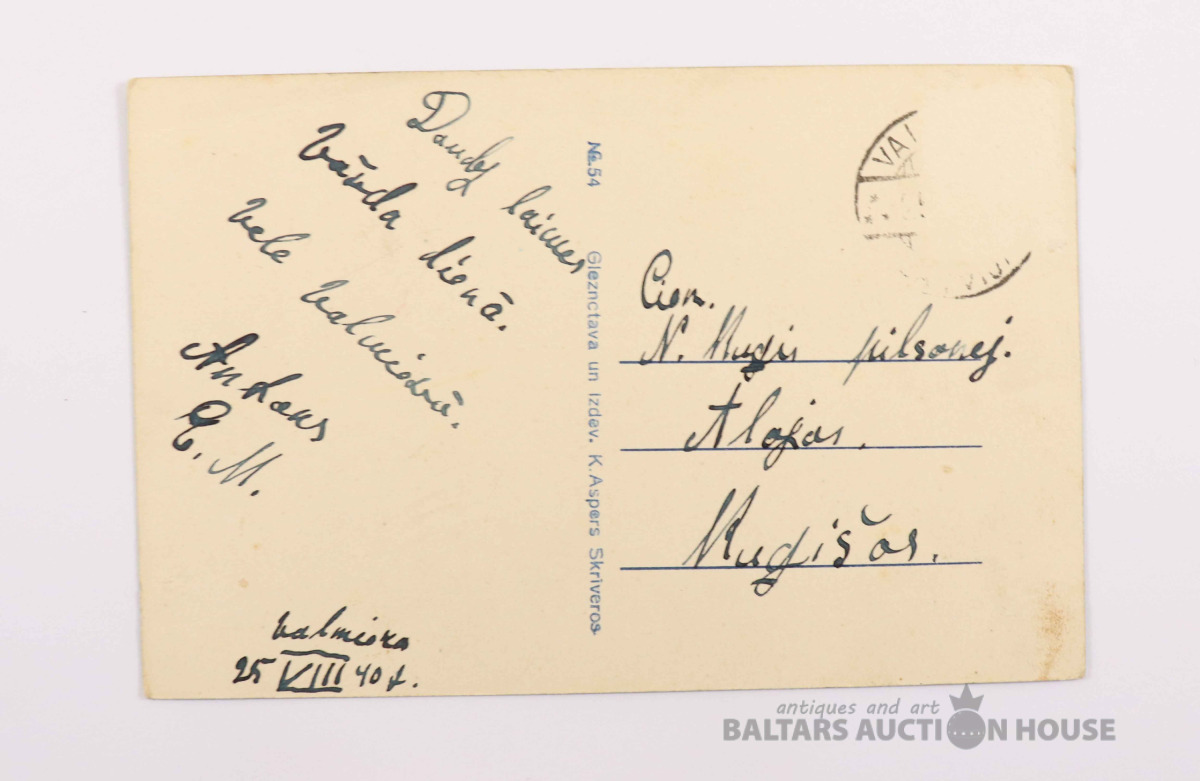 Daudz laimes
vārda dienā.
vēlē Valmierā.
Antons
E. M.
Valmiera
25 VIII 40 g.
№.54 Gleznctava un Izdev. K.Aspers Skriveros
VAL
Cien.
N. Ķuģis pilsonej.
Alojas.
Ķuģišos.
antiques and art
BALTARS AUCTION HOUSE